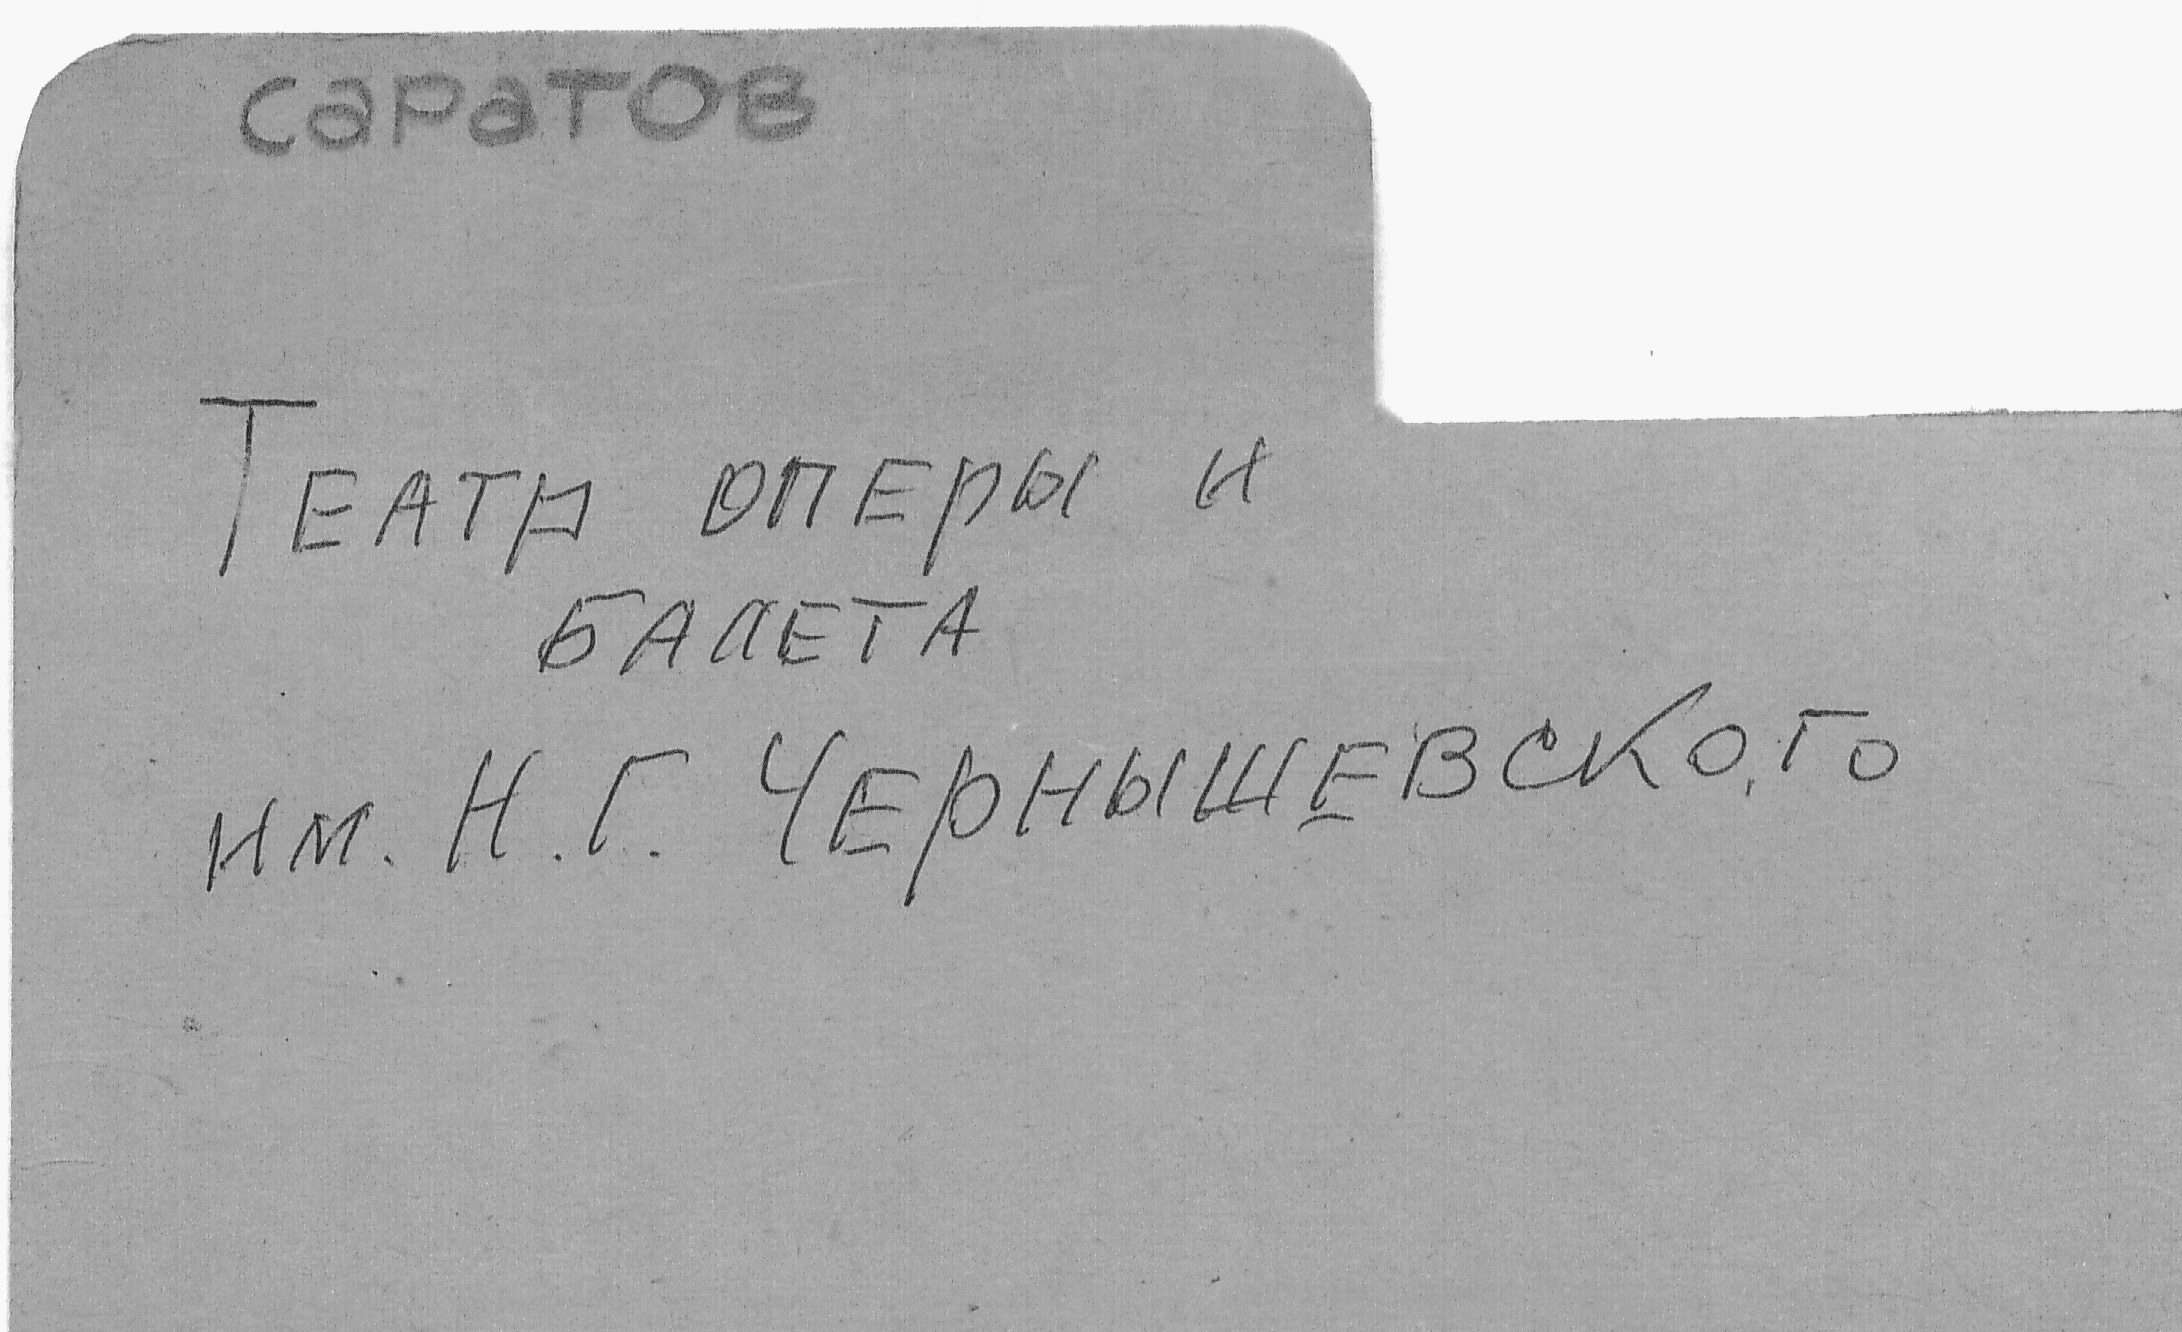 Саратов
Театр оперы и
балета
им. Н.Г. Чернышевского